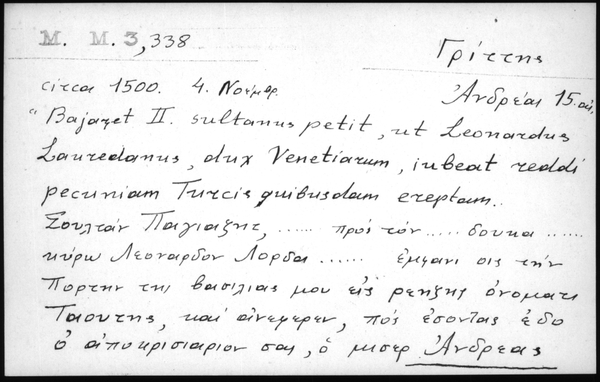 M. M. 3,338
Γρίττης
circa 1500. 4. Νοέμβρ.
Ἀνδρέας 15. αἰ.
"Bajazet II. sultanus petit, ut Leonardus
Lauredanus, dux Venetiarum, iubeat reddi
pecuniam Turcis quibusdam ereptam.
Σουλτάν Παγιαζητ, ...... πρός τόν ..... δουκα ......
κύρω Λεοναρδον Λορδα ...... ἐμφανι σις τὴν
Πορτην της βασιλιας μου εἰς ρεηζης ὀνοματι
Ταουτης, καί ἀνεφερεν, πός ἐσοντας ἐδο
ὁ ἀποκρισιαριον σας, ὁ μισερ Ἀνδρεας